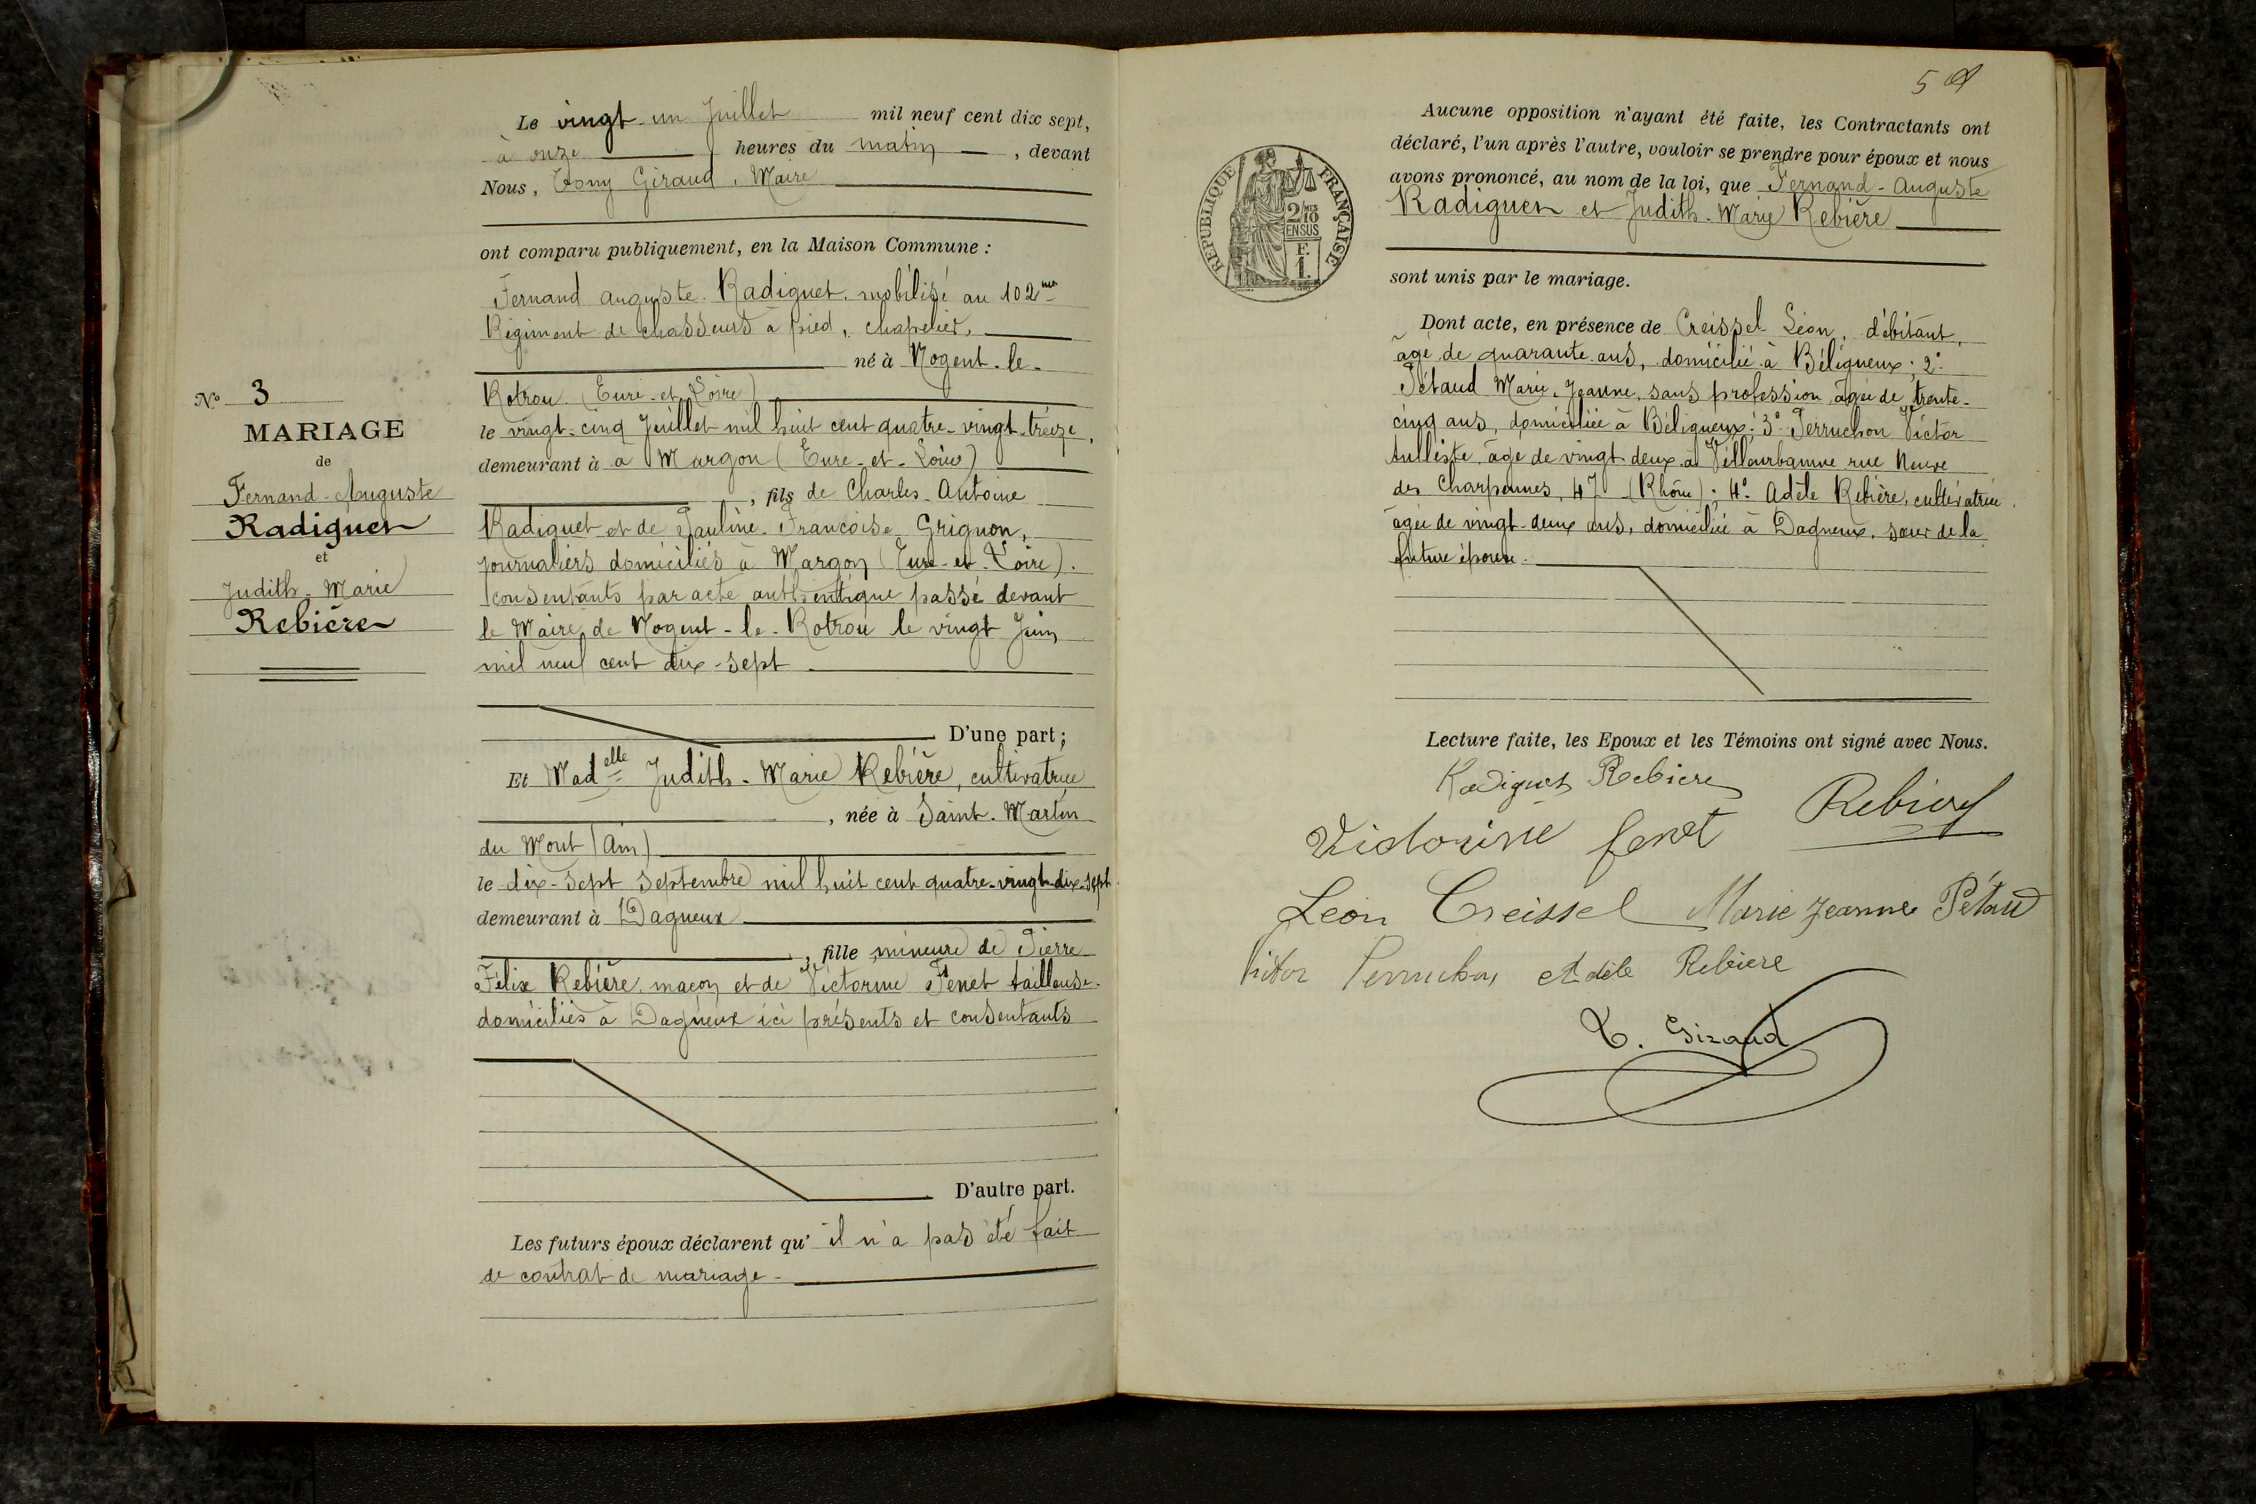 Le vingt-un Juillet mil neuf cent dix sept,
à onze heures du matin, devant
Nous, Tony Giraud, Maire
ont comparu publiquement, en la Maison Commune :
Fernand Auguste Radiguet, mobilisé au 102me
Régiment de chasseurs à pied, chapelier,
né à Nogent-le-
Rotrou (Eure-et-Loire)
le vingt-cinq Juillet mil huit cent quatre-vingt-treize,
demeurant à à Margon (Eure-et-Loire)
, fils de Charles-Antoine
Radiguet et de Pauline-Françoise Grignon,
journaliers domiciliés à Margon (Eure-et-Loire).
consentants par acte authentique passé devant
le Maire de Nogent-le-Rotrou le vingt Juin
mil neuf cent dix-sept
D'une part ;
Et Madelle Judith-Marie Rebière, cultivatrice
, née à Saint-Martin
du Mont (Ain)
le dix-sept Septembre mil huit cent quatre-vingt-dix-sept
demeurant à Dagneux
, fille mineure de Pierre
Félix Rebière, maçon et de Victorine Fenet tailleuse
domiciliés à Dagneux ici présents et consentants
D'autre part.
Les futurs époux déclarent qu' il n'a pas été fait
de contrat de mariage-
No 3
MARIAGE
de
Fernand-Auguste
Radiguet
et
Judith-Marie
Rebière
5
Aucune opposition n'ayant été faite, les Contractants ont
déclaré, l'un après l'autre, vouloir se prendre pour époux et nous
avons prononcé, au nom de la loi, que Fernand-Auguste
Radiguet et Judith-Marie Rebière
sont unis par le mariage.
Dont acte, en présence de Creissel Léon, débitant,
âgé de quarante ans, domicilié à Béligneux ; 2°
Pétaud Marie-Jeanne, sans profession, âgée de trente-
cinq ans, domiciliée à Béligneux ; 3° Perruchon Victor
tulliste, âgé de vingt deux à Villeurbanne rue Neuve
des Charpennes, 47 (Rhône) ; 4° Adèle Rebière, cultivatrice
âgée de vingt-deux ans, domiciliée à Dagneux, sœur de la
future épouse.
Lecture faite, les Epoux et les Témoins ont signé avec Nous.
Radiguet Rebiere
Victorine fenet Rebiere
Léon Creissel Marie Jeanne Pétaud
Victor Perruchon Adèle Rebiere
T. Giraud
RÉPUBLIQUE FRANÇAISE
2/10 MES
EN SUS
F.
1.